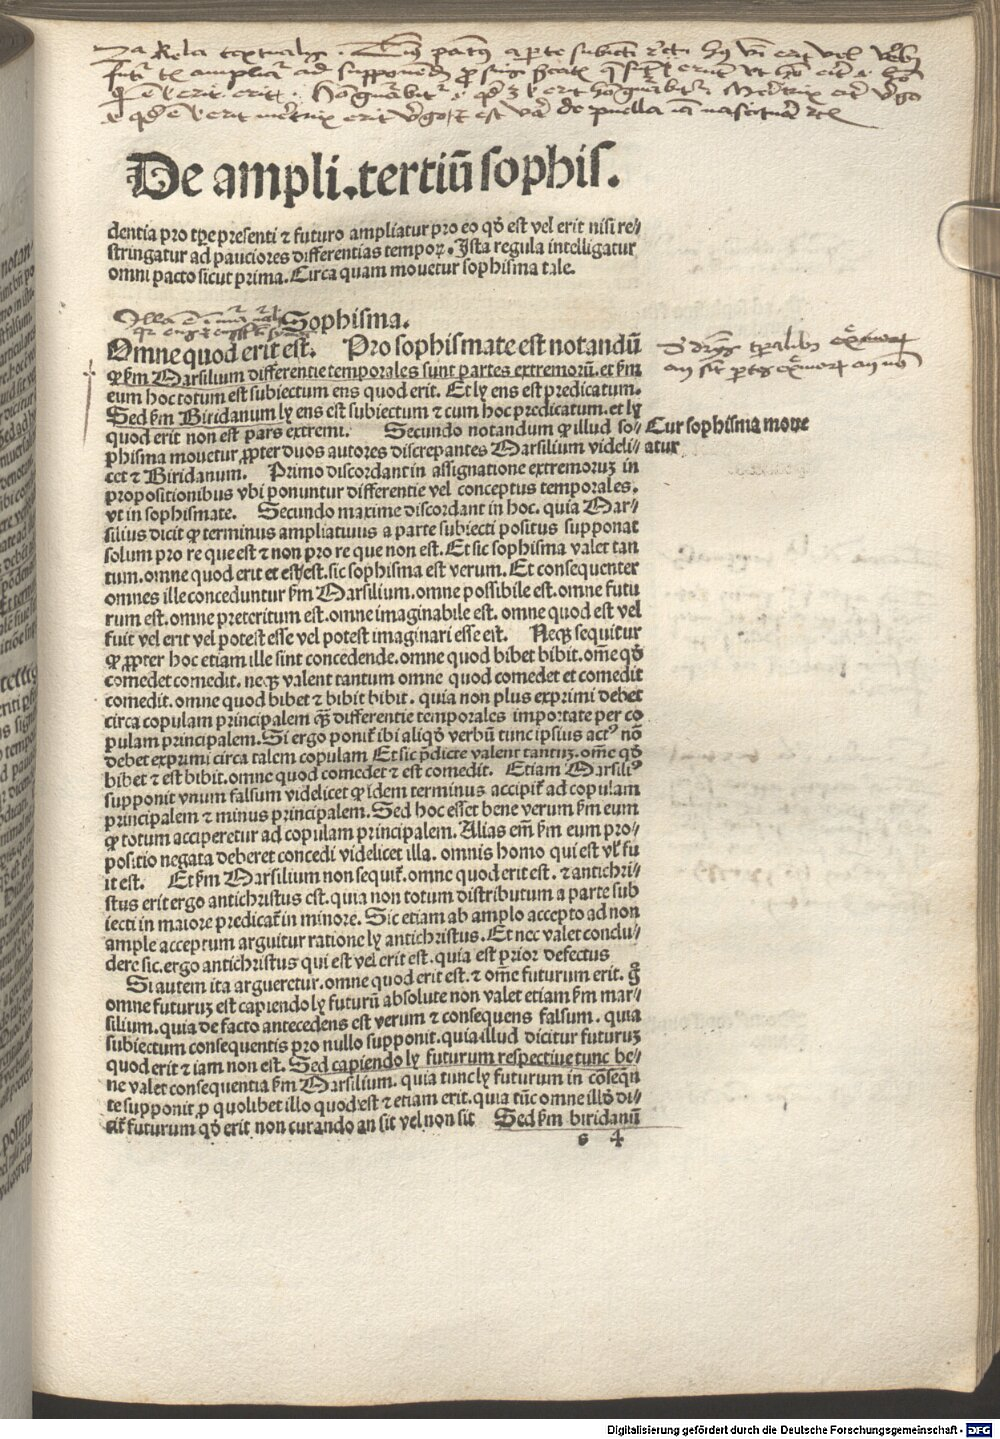 De ampli.tertiū sophis.
dentia pro tꝑe presenti ⁊ futuro ampliatur pro eo qđ est vel erit nisi re⸗
stringatur ad pauciores differentias tempoꝝ. Ista regula intelligatur
omni pacto sicut prima. Circa quam mouetur sophisma tale.
Sophisma.
Omne quod erit est. Pro sophismate est notandū
ꝙ km Marsilium differentie temporales sunt partes extremorū. et km
eum hoc totum est subiectum ens quod erit. Et ly ens est predicatum.
Sed km Biridanum ly ens est subiectum ⁊ cum hoc predicatum. et ly
quod erit non est pars extremi. Secundo notandum ꝙ illud so⸗
phisma mouetur ꝓpter duos autores discrepantes Marsilium videli⸗
cet ⁊ Biridanum. Primo discordant in assignatione extremoruꝫ in
propositionibus vbi ponuntur differentie vel conceptus temporales.
vt in sophismate. Secundo maxime discordant in hoc. quia Mar⸗
silius dicit ꝙ terminus ampliatiuus a parte subiecti positus supponat
solum pro re que est ⁊ non pro re que non est. Et sic sophisma valet tan
tum. omne quod erit et est/est. sic sophisma est verum. Et consequenter
omnes ille conceduntur km Marsilium. omne possibile est. omne futu
rum est. omne preteritum est. omne imaginabile est. omne quod est vel
fuit vel erit vel potest esse vel potest imaginari esse est. Neqꝫ sequitur
ꝙ ꝓpter hoc etiam ille sint concedende. omne quod bibet bibit. om̄e qđ
comedet comedit. neqꝫ valent tantum omne quod comedet et comedit
comedit. omne quod bibet ⁊ bibit bibit. quia non plus exprimi debet
circa copulam principalem qꝫ̄ differentie temporales importate per co
pulam principalem. Si ergo ponit̉ ibi aliqđ verbū tunc ipsius actꝰ nō
debet exprimi circa talem copulam Et sic p̄dicte valent tantuꝫ. om̄e qđ
bibet ⁊ est bibit. omne quod comedet ⁊ est comedit. Etiam Marsiliꝰ
supponit vnum falsum videlicet ꝙ idem terminus accipit̉ ad copulam
principalem ⁊ minus principalem. Sed hoc esset bene verum km eum
ꝙ totum acciperetur ad copulam principalem. Alias em̄ km eum pro⸗
positio negata deberet concedi videlicet illa. omnis homo qui est vl̉ fu
it est. Et km Marsilium non sequit̉. omne quod erit est. ⁊ antichri⸗
stus erit ergo antichristus est. quia non totum distributum a parte sub
iecti in maiore predicat̉ in minore. Sic etiam ab amplo accepto ad non
ample acceptum arguitur ratione ly antichristus. Et nec valet conclu⸗
dere sic. ergo antichristus qui est vel erit est. quia est prior defectus
Si autem ita argueretur. omne quod erit est. ⁊ om̄e futurum erit. g̊
omne futuruꝫ est capiendo ly futurū absolute non valet etiam km mar⸗
silium. quia de facto antecedens est verum ⁊ consequens falsum. quia
subiectum consequentis pro nullo supponit. quia illud dicitur futuruꝫ
quod erit ⁊ iam non est. Sed capiendo ly futurum respectiue tunc be⸗
ne valet consequentia km Marsilium. quia tunc ly futurum in cōseqn̄
te supponit ꝓ quolibet illo quod est ⁊ etiam erit. quia tūc omne illđ di⸗
cit̉ futurum qđ erit non curando an sit vel non sit Sed km biridanū
Cur sophisma moue
atur
s 4
Digitalisierung gefördert durch die Deutsche Forschungsgemeinschaft - DFG